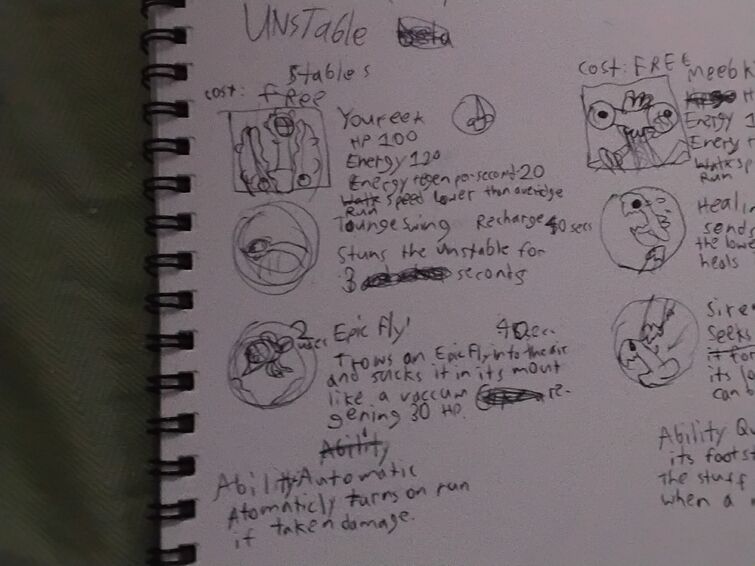 UNSTable
Stables
cost: free
Youreek
HP 100
Energy 120
Energy regen per second 20
Walk speed lower than averidge
Run
Toungeswing Recharge 40 secs
Stuns the unstable for
3 seconds
Epic Fly! 40 sec.
2 usec
Trows an Epic Fly into the air
and sucks it in its mout
like a vaccum re-
gening 30 HP.
Ability
Ability Automatic
Atomaticly turns on run
if taken damage.
cost: FREE
Meebk
H
Energy 1
Energy r
Walk sp
Run
Healin
sends
the lowe
heals
Sire
Seeks
it for
its lo
can b
Ability Qu
its footst
the stuff
when a